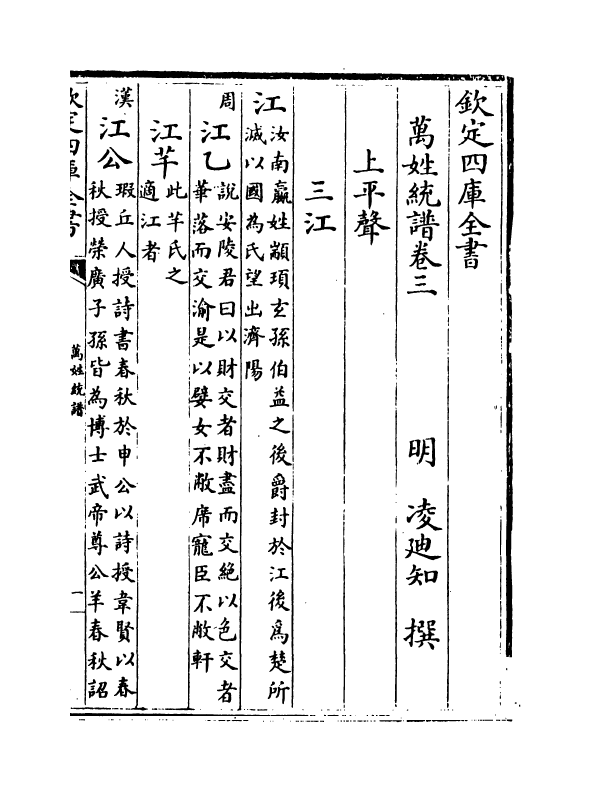 欽定四庫全書
萬姓統譜卷三
明 凌廸知 撰
上平聲
三江
江
汝南嬴姓顓頊玄孫伯益之後爵封於江後爲楚所
滅以國為氏望出濟陽
周
江乙
說安陵君曰以財交者財盡而交絕以色交者
華落而交渝是以嬖女不敝席寵臣不敝軒
江芊
此芊氏之
適江者
漢
江公
瑕丘人授詩書春秋於申公以詩授韋賢以春
秋授榮廣子孫皆為博士武帝尊公羊春秋詔
欽定四庫全書
萬姓統譜
一